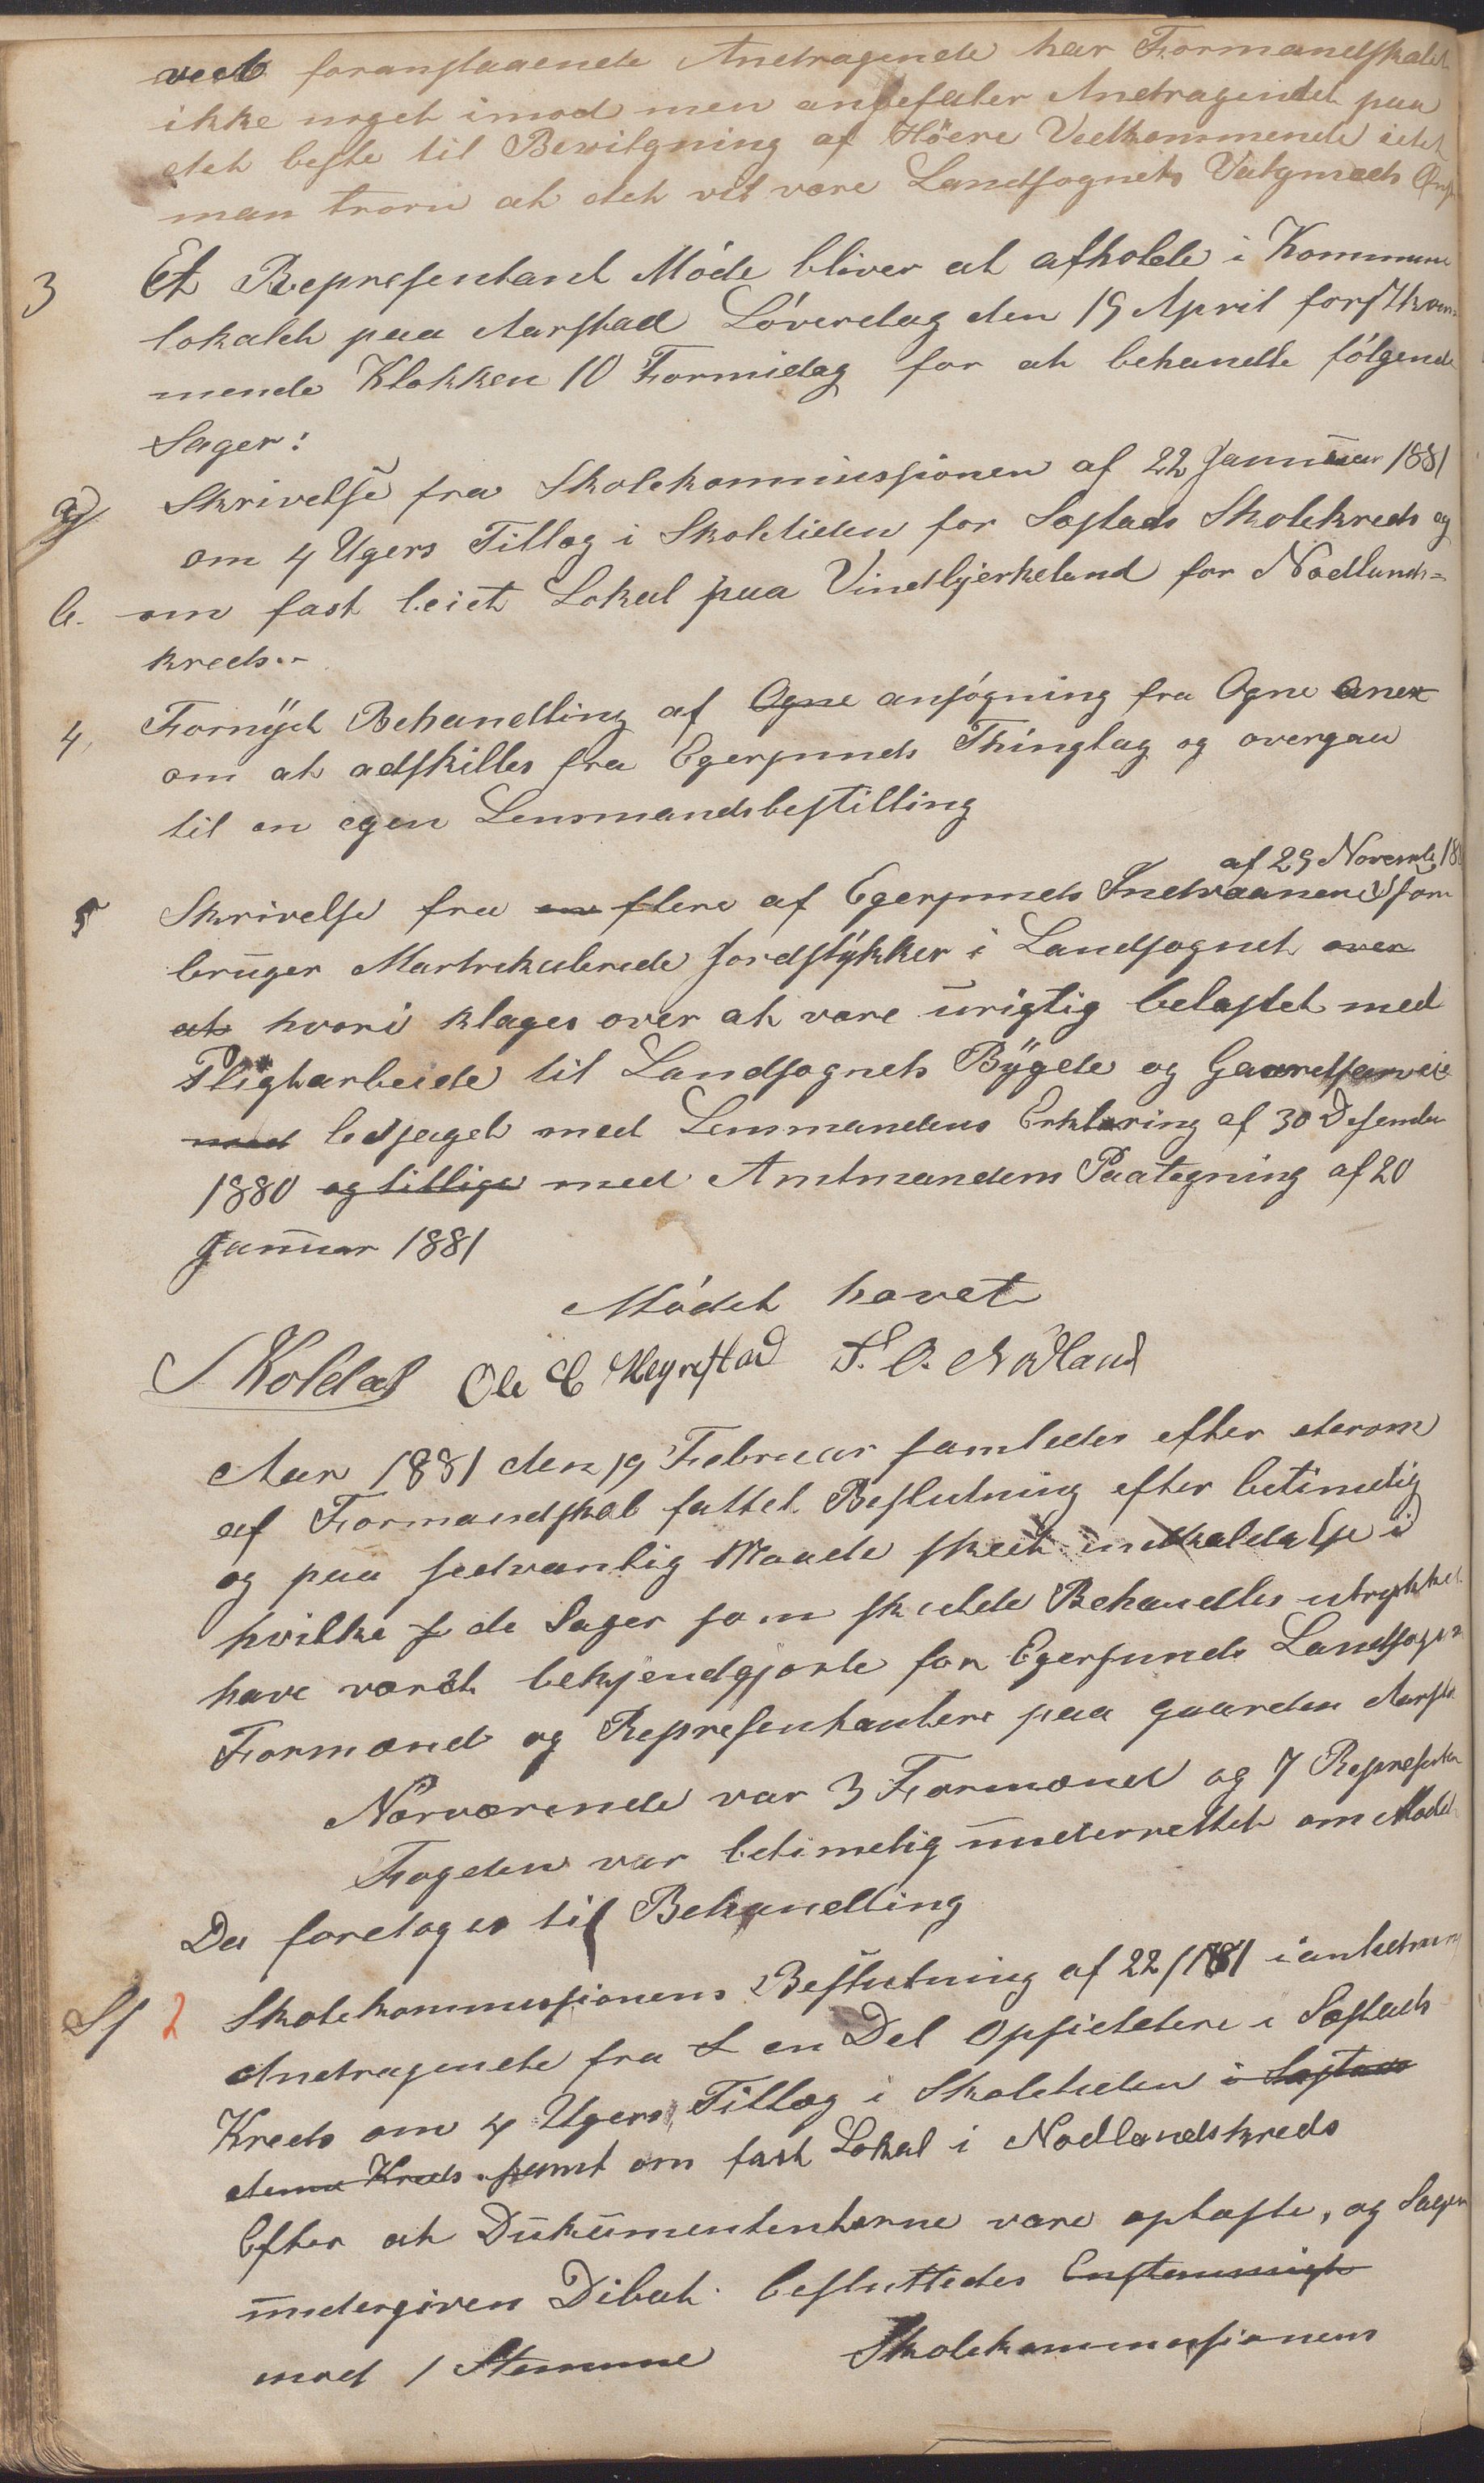 ved foranstaaende Andragende har Formandskabet
ikke noget imod men anbefaler Andragendet paa
det beste til Bevilgning af Höiere Vedkommende idet
man troru at det vil være Landsognets Valgmæds
3 Et Representant Móde bliver at afholde i Kommune
lokalet paa Aarstad Lóverdag den 19 April førstkom-
mende Klokken 10 Formidag for at behandle fólgende
Sager:
a Skrivelse fra Skolekommissionen af 22 Januar 1881
om 4 Ugers Tillæg i Skoletiden for Sæstads Skolekreds og
b. om fast leiet Lokal paa Vindbjerkeland for Nodlands-
kreds.-
4, Fornyet Behandling af Ogne ansógning fra Ogne Anex
om at adskilles fra Egersunds Thinglag og overgaa
til en egen Lensmandsbestilling
af 29 Novemb 188
5 Skrivelse fra en flere af Egersunds Indvaanere som
bruger Martrikulerede Jordstykker i Landsognet over
at hvori klages over at være urigtig belastet med
Pligtarbeide til Landsognets Bygde og
med ledsaget med Lensmandens Erklæring af 30 Desember
1880 og tillige med Amtmandens Paategning af 20
Januar 1881
Módet hævet
S Koldal Ole C Hegrestad T. O. Nódland
Aar 1881 den 19 Februar samledes efter derom
af Formandskab fattet Beslutning efter betimelig
og paa sedvanlig Maade skeet indkaldelse i
hvilke f de Sager som skulde Behandles utrykket
have været bekjendgjorte for Egersunds Landsogn
Formænd og Representantere paa gaarden Aarsta
Nærværende var 3 Formænd og 7 Represent
Fogden var betimelig underrettet om Mødet
Da foretoges til Behandling
Sf 2 Skolekommissionens Beslutning af 22/1 81 i anledning
Andragende fra S en Del Opsiddere i Sæstads
Kreds om 4 Ugers Tillæg i Skoletiden i Sæstads
denne Kreds samt om fast Lokal i Nodlandskreds
Efter at Dukumententerne vare oplæste, og Sagen
undergiven Dibat besluttedes Enstemmigt
mod 1 Stemme Skolekommissionens